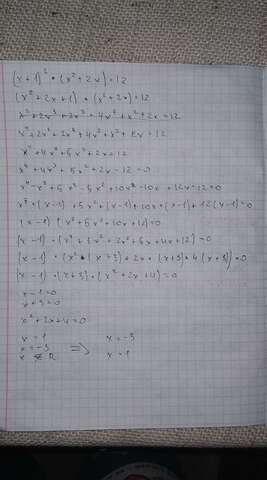 (x+1)² • (x²+2x)=12
(x²+2x+1) • (x²+2x)=12
x⁴+2x³+2x³+4x²+x²+2x=12
x⁴+2x³+2x³+4x²+x²+2x=12
x⁴+4x³+5x²+2x=12
x⁴+4x³+5x²+2x-12=0
x⁴-x³+5x³-5x²+10x²-10x+12x-12=0
x³•(x-1)+5x²•(x-1)+10x•(x-1)+12(x-1)=0
(x-1)•(x³+5x²+10x+12)=0
(x-1)•(x³+3x²+2x²+6x+4x+12)=0
(x-1)•(x²•(x+3)+2x•(x+3)+4(x+3))=0
(x-1)•(x+3)•(x²+2x+4)=0
x-1=0
x+3=0
x²+2x+4=0
x=1
x=-3 ⇒ x=-3
x∉R x=1